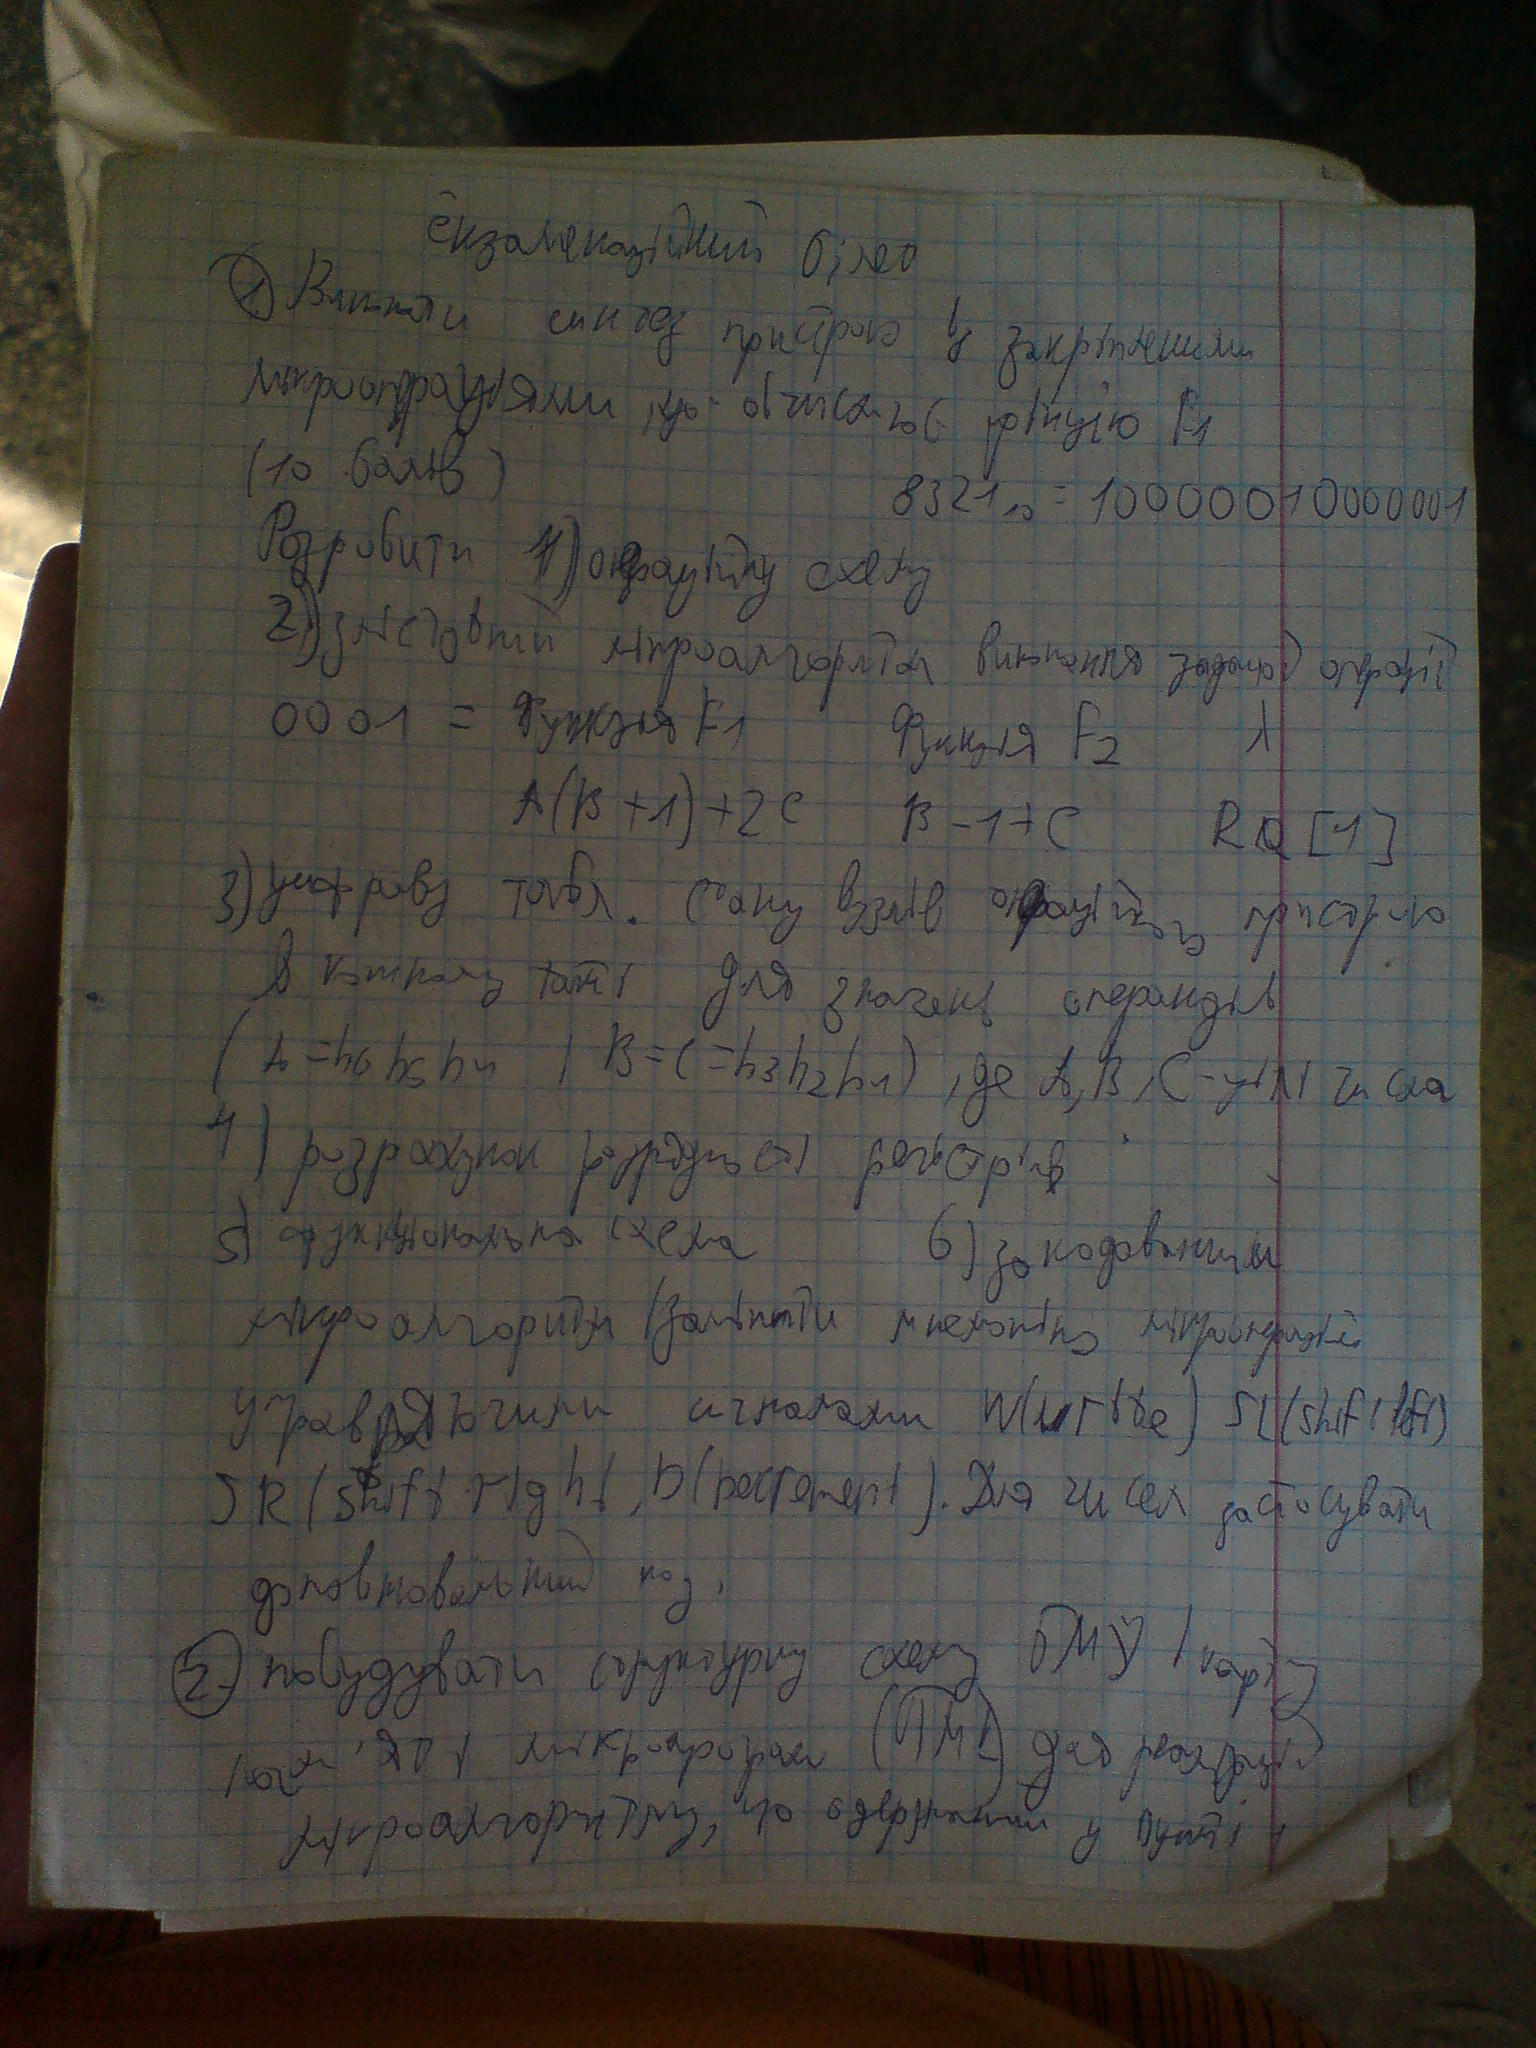 Екзаменаційний білет
① Виконати синтез пристрою з закріпленими
мікроопераціями, що обчислює функцію F1
(10 балів)
8321₁₀ = 10000010000001
Розробити 1) операційну схему
2) змістовний мікроалгоритм виконання заданої операції
0001 = Функція F1 Функція F2 λ
A(B+1)+2C B-1+C RQ[1]
3) цифрову табл. стану вузлів операційного пристрою
в кожному такті для значень операндів
(A=h6h5h4 , B=C=h3h2h1), де A, B, C - цілі числа
4) розрахунок розрядності регістрів
5) функціональна схема 6) закодований
мікроалгоритм (замінити мнемоніку мікрооперацій
управляючими сигналами W(write) SL(shift left)
SR(shift right), D(decrement). Для чисел застосувати
доповнювальний код.
② побудувати структурну схему БМУ, карту
мікропрограм (ПМК) для реалізації
мікроалгоритму, що одержаний у пункті 1